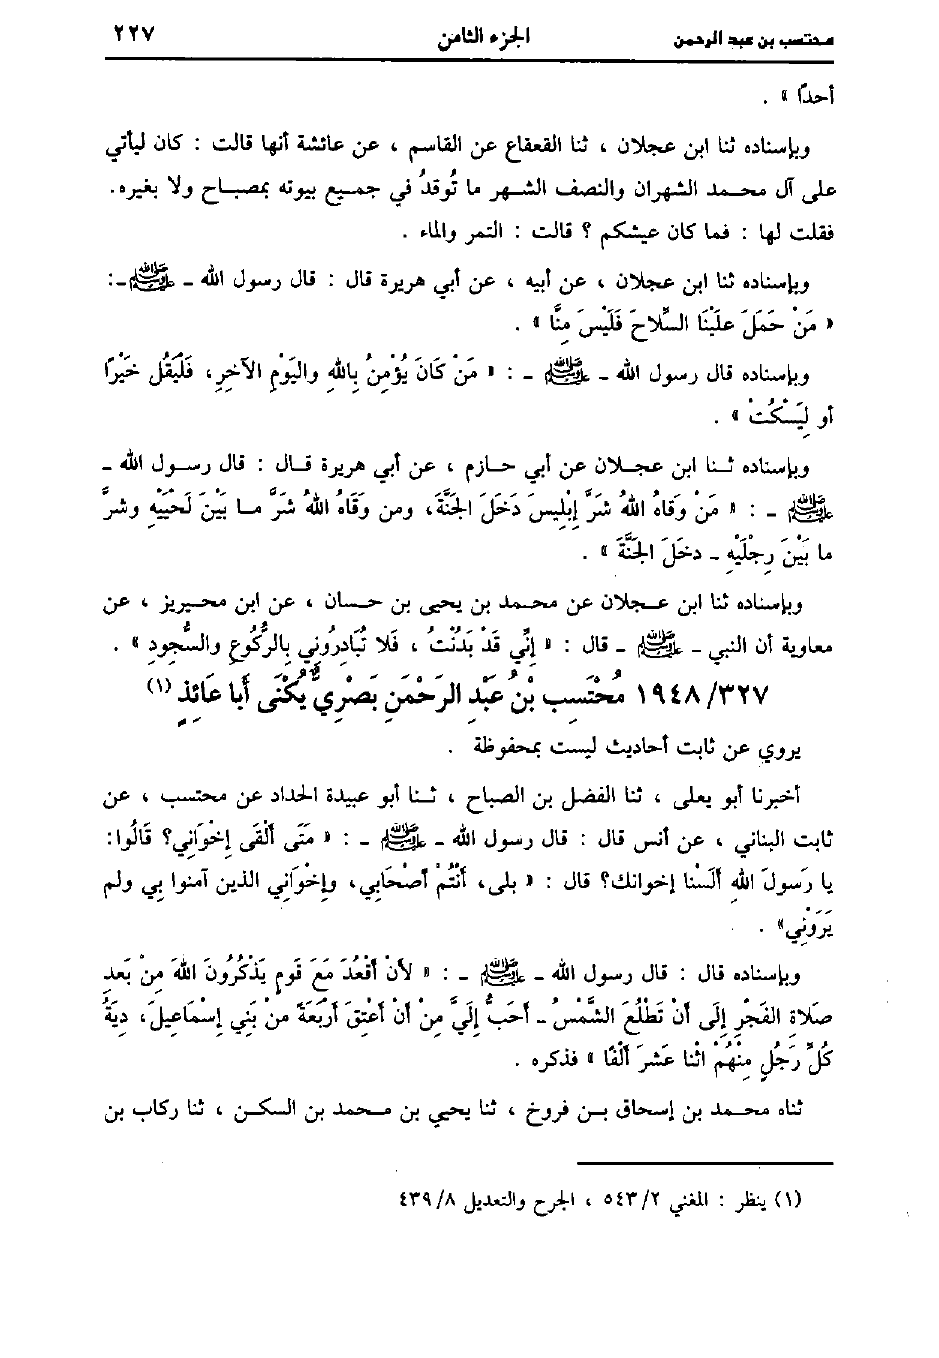 محتسب بن عبد الرحمن الجزء الثامن ٢٢٧
أحدًا » .
وبإسناده ثنا ابن عجلان ، ثنا القعقاع عن القاسم ، عن عائشة أنها قالت : كان ليأتي
على آل محمد الشهران والنصف الشهر ما تُوقدُ في جميع بيوته بمصباح ولا بغيره .
فقلت لها : فما كان عيشكم ؟ قالت : التمر والماء .
وبإسناده ثنا ابن عجلان ، عن أبيه ، عن أبي هريرة قال : قال رسول الله ـ ﷺ ـ :
« مَنْ حَمَلَ عَلَيْنَا السِّلاحَ فَلَيْسَ مِنَّا » .
وبإسناده قال رسول الله ـ ﷺ ـ : « مَنْ كَانَ يُؤْمِنُ بِاللهِ واليَوْمِ الآخِرِ، فَلْيَقُل خَيْرًا
أو لِيَسْكُتْ » .
وبإسناده ثنا ابن عجلان عن أبي حازم ، عن أبي هريرة قال : قال رسول الله ـ
ﷺ ـ : « مَنْ وَقاهُ اللهُ شَرَّ إِبْلِيسَ دَخَلَ الجَنَّةَ، ومن وَقَاهُ اللهُ شَرَّ ما بَيْنَ لَحْيَيْهِ وشَرَّ
ما بَيْنَ رِجْلَيْهِ ـ دخَلَ الجَنَّةَ » .
وبإسناده ثنا ابن عجلان عن محمد بن يحيى بن حسان ، عن ابن محيريز ، عن
معاوية أن النبي ـ ﷺ ـ قال : « إِنِّي قَدْ بَدُنْتُ ، فَلا تُبَادِرُونِي بِالرُّكُوعِ والسُّجودِ » .
١٩٤٨/٣٢٧ مُحْتَسِب بْنُ عَبْدِ الرَحْمَنِ بَصْرِيٌّ يُكْنَى أَبا عَائذٍ (١)
يروي عن ثابت أحاديث ليست بمحفوظة .
أخبرنا أبو يعلى ، ثنا الفضل بن الصباح ، ثنا أبو عبيدة الحداد عن محتسب ، عن
ثابت البناني ، عن أنس قال : قال رسول الله ـ ﷺ ـ : « مَتَى أَلْقَى إِخْوَانِي؟ قَالُوا:
يا رَسولَ اللهِ أَلَسْنا إخوانك؟ قال : « بلى، أَنْتُمْ أصْحَابِي، وإخْوَاني الذين آمنوا بِي ولم
يَرَوْنِي» .
وبإسناده قال : قال رسول الله ـ ﷺ ـ : « لأنْ أقْعُدَ مَعَ قَومٍ يَذْكُرُونَ اللهَ مِنْ بَعدِ
صَلاةِ الفَجْرِ إلَى أنْ تَطْلُعَ الشَّمْسُ ـ أحَبُّ إِلَيَّ مِنْ أنْ أعْتِقَ أرْبَعَةً منْ بَنِي إِسْمَاعِيلَ، دِيَةُ
كُلِّ رَجُلٍ مِنْهُمْ اثْنا عَشَرَ أَلْفًا » فذكره .
ثناه محمد بن إسحاق بن فروخ ، ثنا يحيي بن محمد بن السكن ، ثنا ركاب بن
(١) ينظر : المغني ٥٤٣/٢ ، الجرح والتعديل ٤٣٩/٨